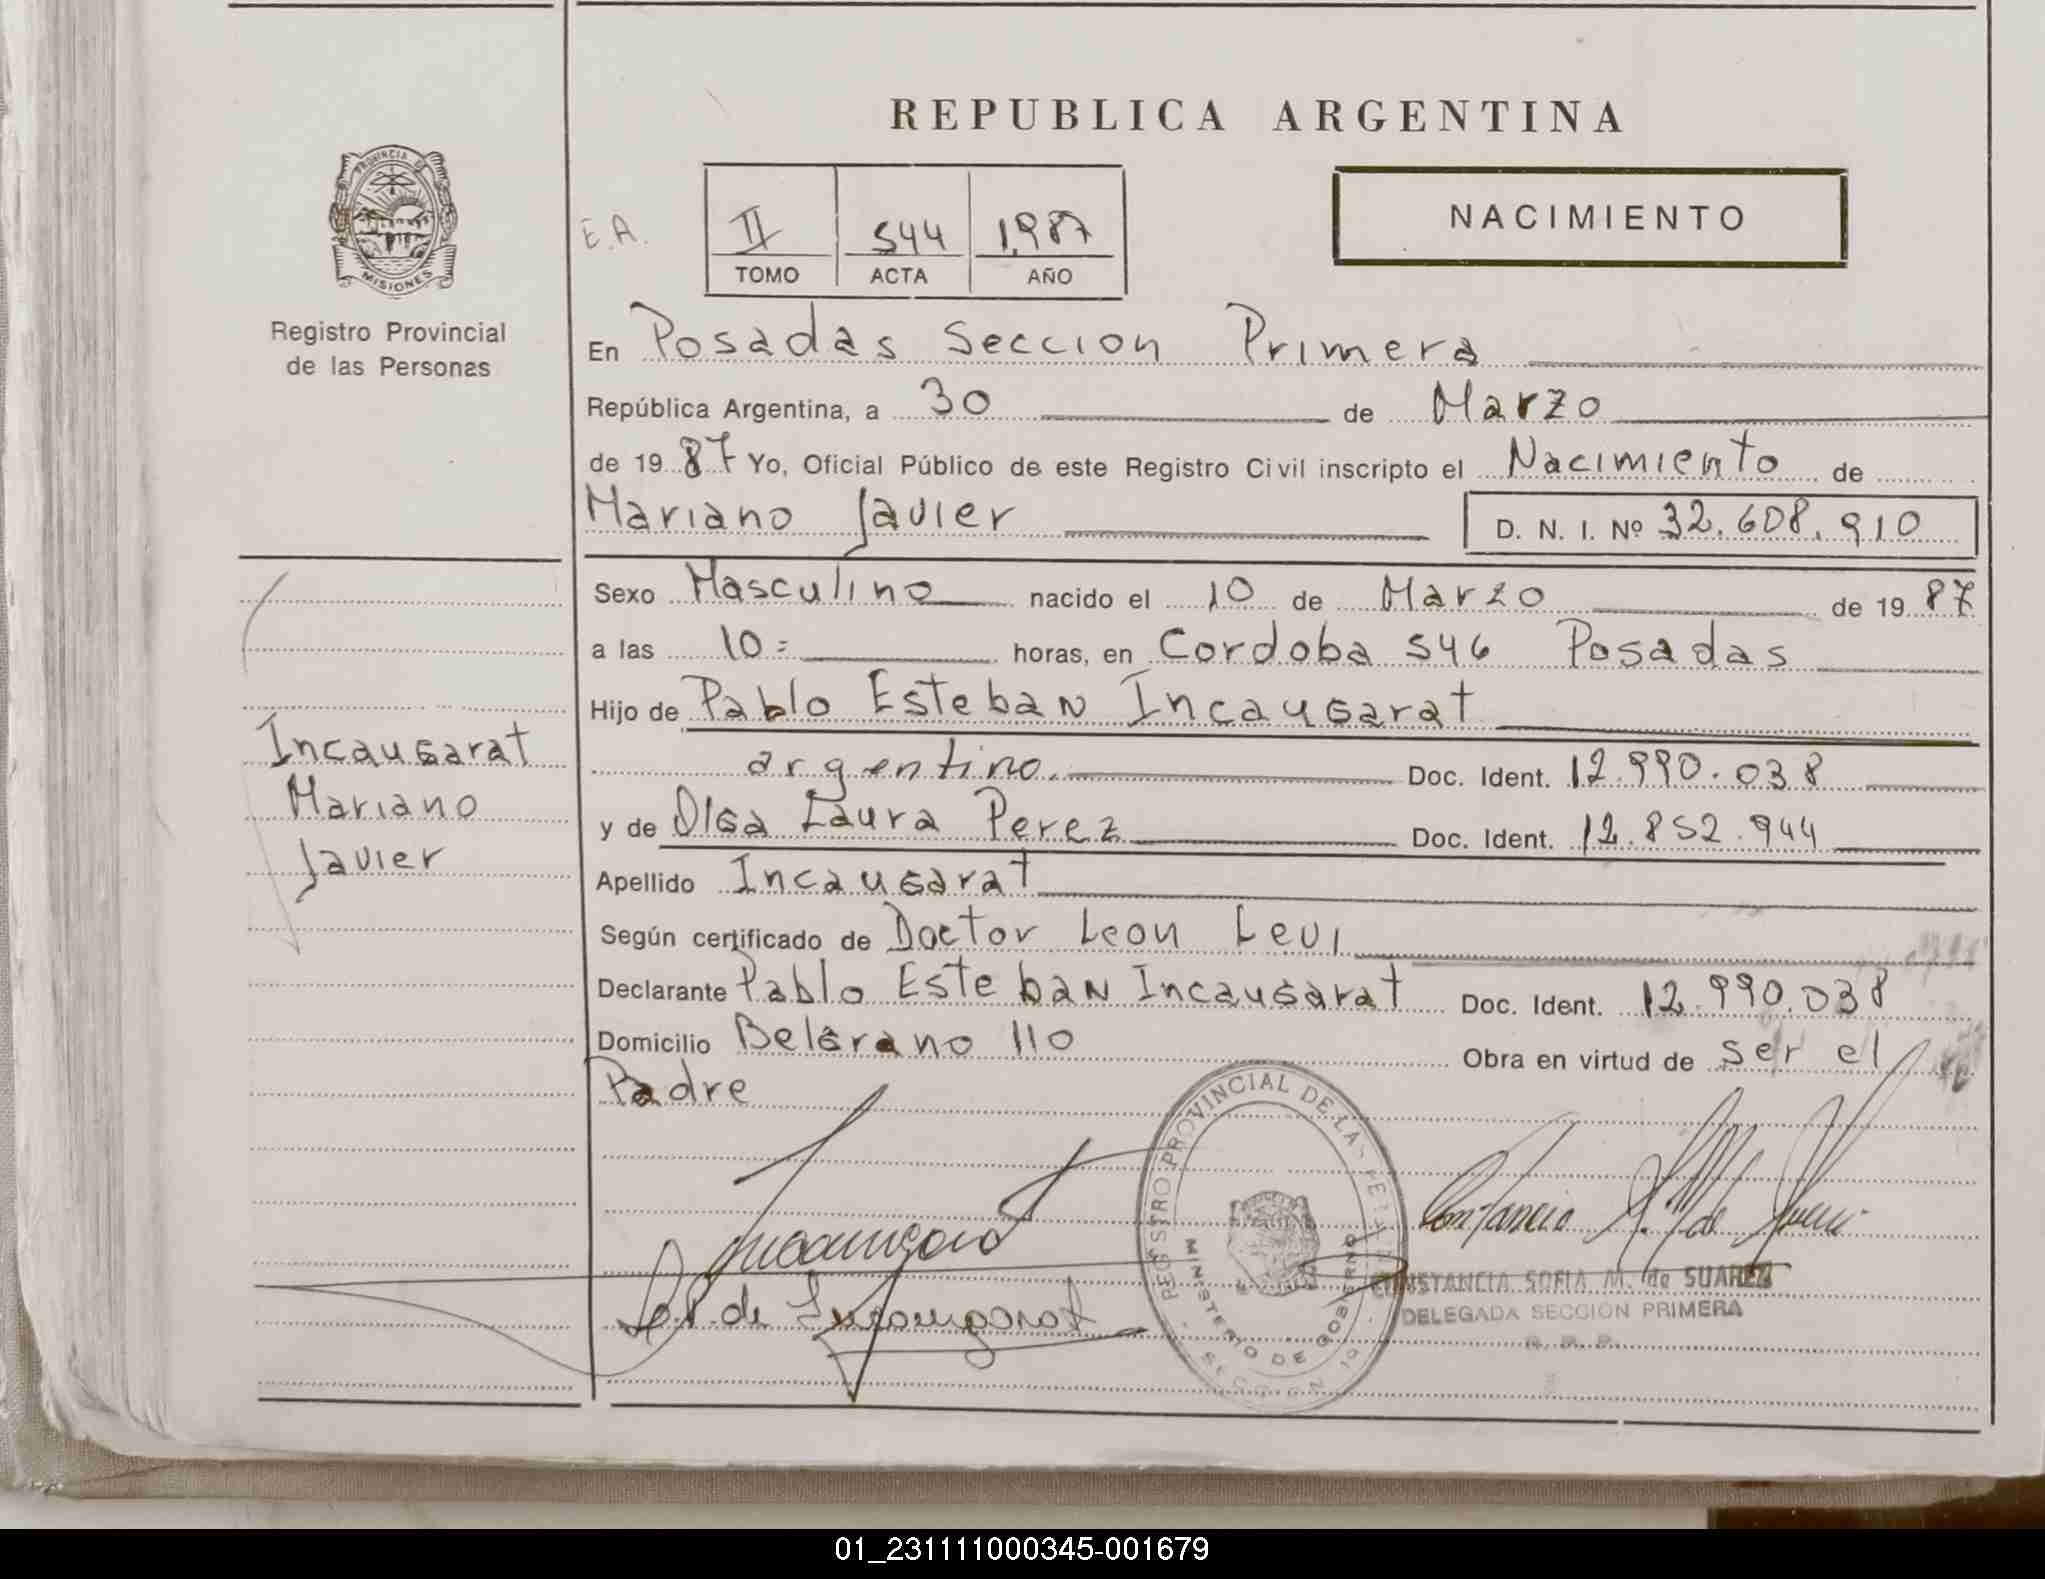 REPUBLICA ARGENTINA
PROVINCIA DE
MISIONES
Registro Provincial
de las Personas
E.A.
II 544 1987
TOMO ACTA AÑO
NACIMIENTO
En Posadas Seccion Primera
República Argentina, a 30 de Marzo
de 1987 Yo, Oficial Público de este Registro Civil inscripto el Nacimiento de
Mariano Javier D. N. I. Nº 32.608.910
Sexo Masculino nacido el 10 de Marzo de 1987
a las 10= horas, en Cordoba 546 Posadas
Hijo de Pablo Esteban Incaugarat
argentino. Doc. Ident. 12.990.038
y de Olga Laura Perez Doc. Ident. 12.852.944
Apellido Incaugarat
Según certificado de Doctor Leon Levi
Declarante Pablo Esteban Incaugarat Doc. Ident. 12.990.038
Domicilio Belgrano 110 Obra en virtud de ser el
Padre
Incaugarat
Mariano
Javier
REGISTRO PROVINCIAL DE LAS
MINISTERIO DE GOBIERNO
Incaugarat
de Incaugarat
Constancia de
CONSTANCIA SOFIA M. de SUAREZ
DELEGADA SECCION PRIMERA
01_231111000345-001679